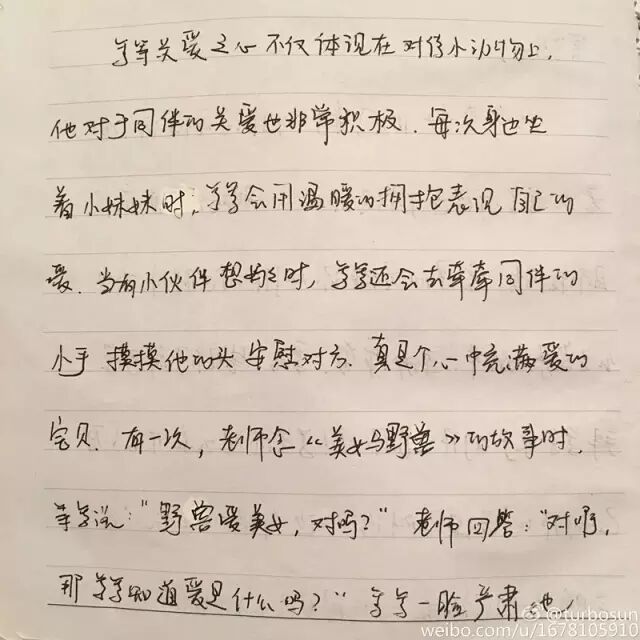 关爱之心不仅体现在对待小动物上,
他对于同伴的关爱也非常积极.每次身边坐
着小妹妹时,会用温暖的拥抱表现自己的
爱.当有小伙伴想妈妈时,还会去牵牵同伴的
小手 摸摸他的头 安慰对方.真是个心中充满爱的
宝贝.有一次,老师念《美女与野兽》的故事时.
说:"野兽爱美女,对吗?" 老师回答:"对啊,
那知道爱是什么吗?" 一脸严肃地
@turbosun
weibo.com/u/1678105910